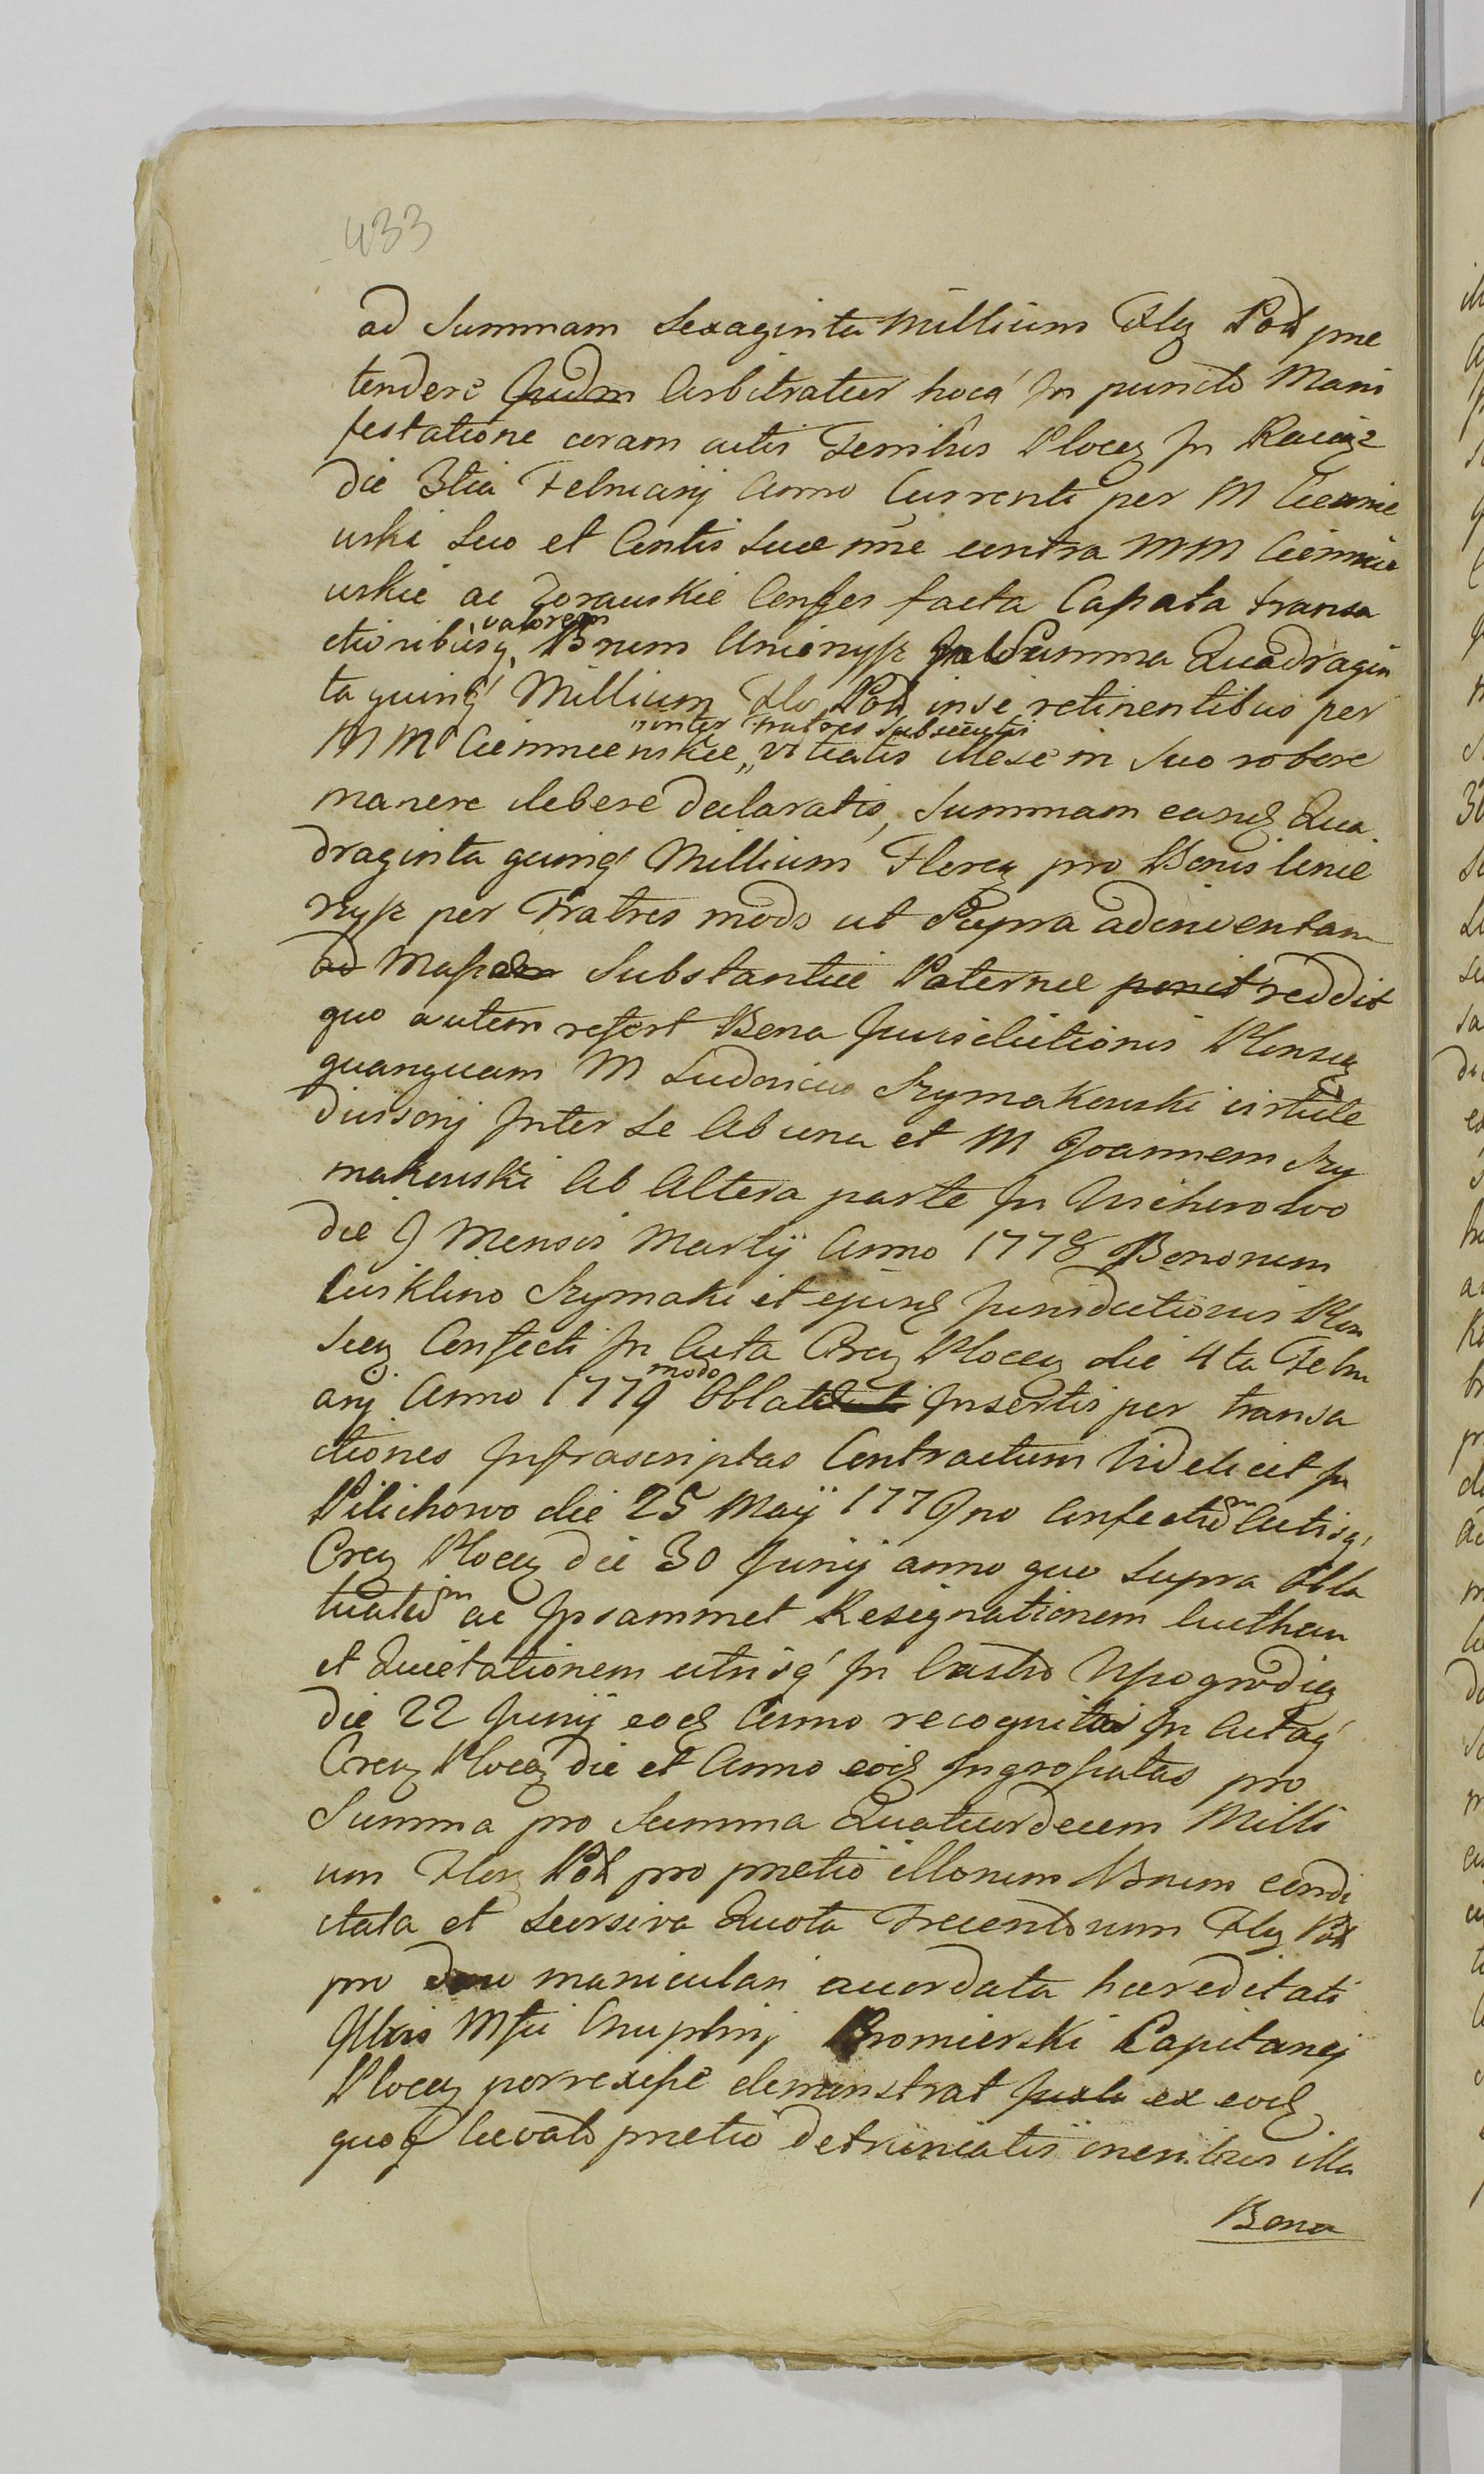 433
ad Summam Sexaginta Millium Flg Pol prae
tendere Judm Arbitratur hocq' In puncto Mani
festatione coram actis Terribus Plocen In Raciąz
die 3tia Februarij Anno Currenti per M Ciemnie
wski suo et Contis suae nõe contra MM Ciemnie
wskie ac Zorawskie Conges facta Capata transa
ctionibusq, valorem Bnum Unierzysz In Summa Quadragin
ta quinq' Millium Flo Pol in se retinentibus per
MM Ciemniewskie „inter Fratres Subsecutis „ vitiatis illese in suo robore
manere debere declaratis, Summam eand Qua
draginta quinq' Millium Floren pro Bonis Unie
rzysz per Fratres modo ut Supra adinventam
ad Massam Substantiae Paternae ponit reddit
quo autem refert Bona Jurisdictionis Plonscen
quanquam M Ludovicus Szymakowski virtute
divisorij Inter se Ab una et M Joannem Szy
makowski Ab Altera parte In Wichorowo
die 9 Mensis Martij Anno 1778 Bonorum
Cwiklino Szymaki et ejusd Jurisdictionis Plon
scen Confecti In Acta Cren Plocen die 4ta Febru
arij Anno 1779 modo Oblatae Insertis per transa
ctiones Infrascriptas Contractum Videlicet In
Pilichowo die 25 Maij 1779no Confectum Actisq'
Cren Plocen die 30 Junij anno quo supra Obla
tuatum ac Ipsammet Resignationem Authen
et Quietationem utrisq' In Castro Wyszogrodien
die 22 Junij eod Anno recognitas In Actaq'
Cren Plocen die et Anno eod Ingrossatas pro
Summa pro Summa Quatuordecem Milli
um Floren Pol pro praetio illorum Bnum condi
ctata et seorsiva Quota Trecentorum Flg Pol
pro maniculari accordata haereditati
Illris Mfci Onuphrij Bromierski Capitanej
Plocen porrexisse demonstrat Juxta ex eod
quoq levato praetio detruncatis oneribus illa
Bona